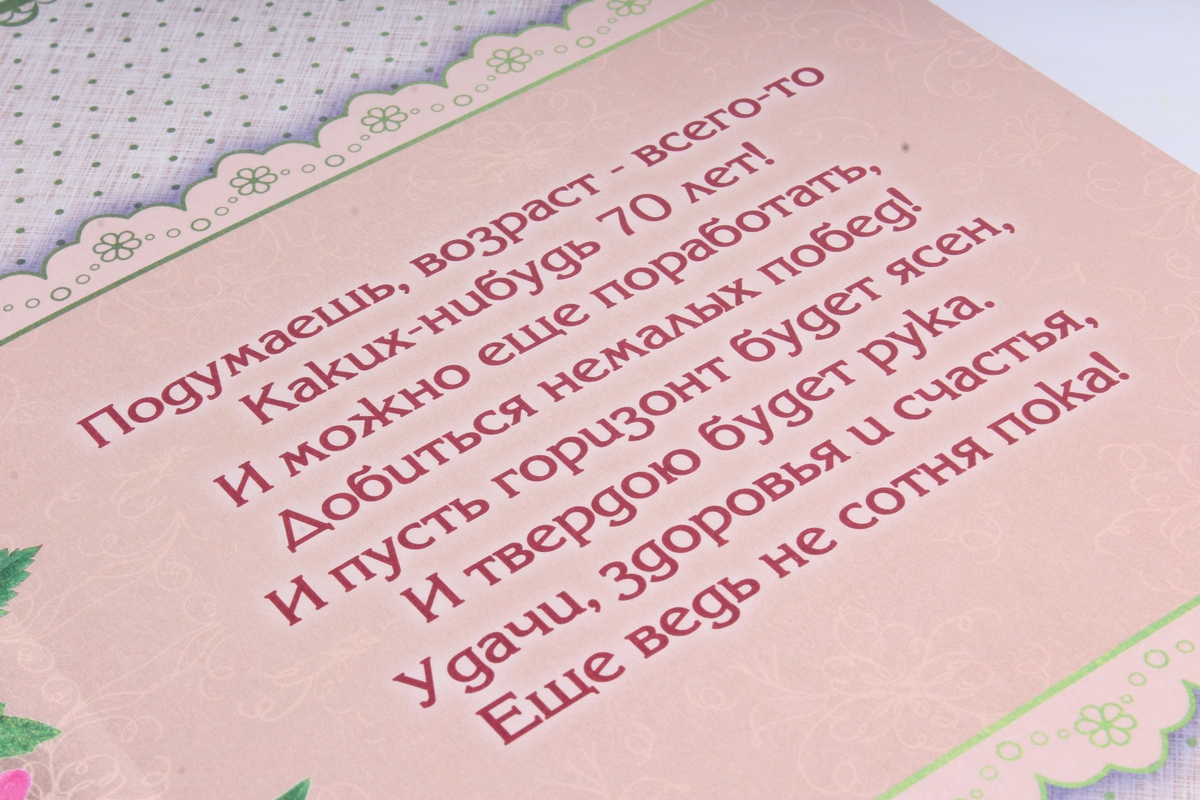 Подумаешь, возраст - всего-то
Каких-нибудь 70 лет!
И можно еще поработать,
Добиться немалых побед!
И пусть горизонт будет ясен,
И твердою будет рука.
Удачи, здоровья и счастья,
Еще ведь не сотня пока!